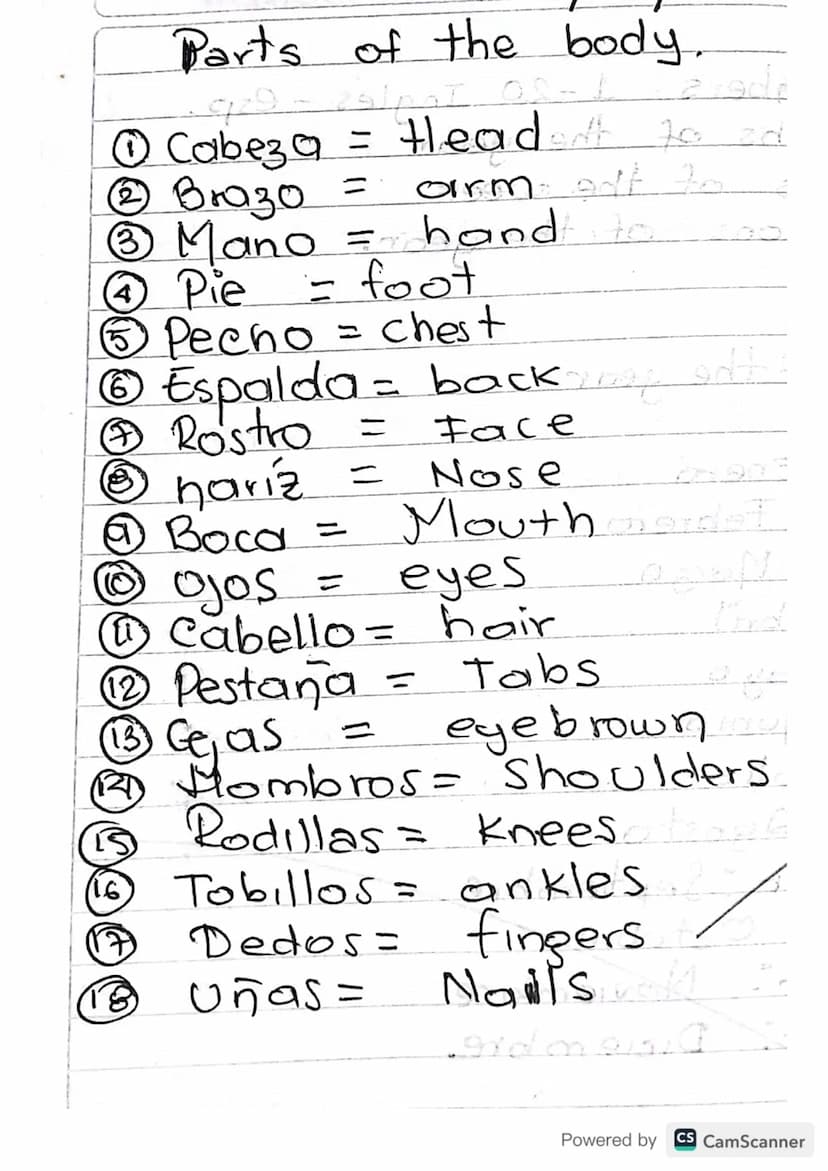 Parts of the body.
① Cabeza = Head
② Brazo = arm
③ Mano = hand
④ Pie = foot
⑤ Pecho = chest
⑥ Espalda = back
⑦ Rostro = Face
⑧ naríz = Nose
⑨ Boca = Mouth
⑩ Ojos = eyes
⑪ Cabello = hair
⑫ Pestaña = Tabs
⑬ Cejas = eyebrown
⑭ Hombros = Shoulders
⑮ Rodillas = Knees
⑯ Tobillos = ankles
⑰ Dedos = fingers
⑱ Uñas = Nails
Powered by CS CamScanner